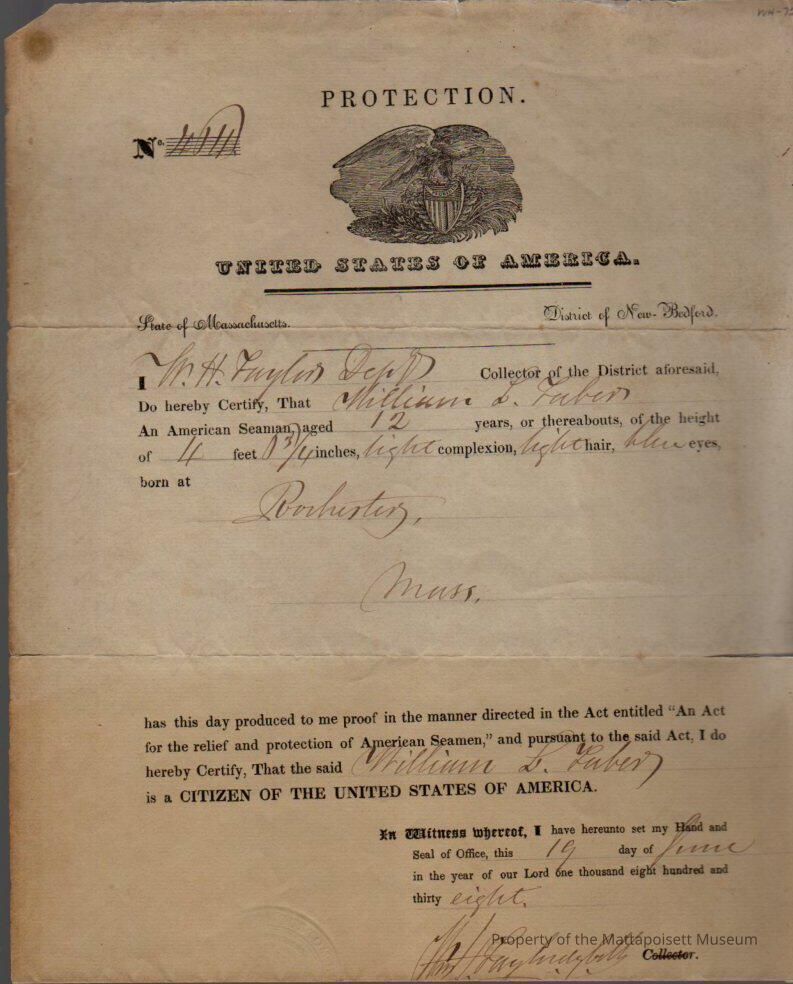 PROTECTION.
No.
UNITED STATES OF AMERICA.
State of Massachusetts. District of New-Bedford.
I W. H. Taylor Depy Collector of the District aforesaid,
Do hereby Certify, That William L. Taber
An American Seaman, aged 12 years, or thereabouts, of the height
of 4 feet 8 3/4 inches, light complexion, light hair, blue eyes,
born at
Rochester,
Mass.
has this day produced to me proof in the manner directed in the Act entitled "An Act
for the relief and protection of American Seamen," and pursuant to the said Act, I do
hereby Certify, That the said William L. Taber
is a CITIZEN OF THE UNITED STATES OF AMERICA.
In Witness whereof, I have hereunto set my Hand and
Seal of Office, this 19 day of June
in the year of our Lord one thousand eight hundred and
thirty eight.
Property of the Mattapoisett Museum
Collector.